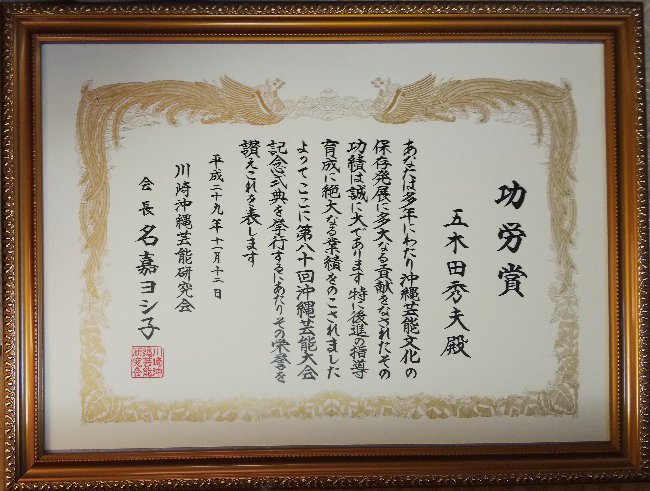 功労賞
五木田秀夫殿
あなたは多年にわたり沖縄芸能文化の
保存発展に多大なる貢献をなされたその
功績は誠に大であります特に後進の指導
育成に絶大なる業績をのこされました
よってここに第八十回沖縄芸能大会
記念式典を挙行するにあたりその栄誉を
讃えこれを表します
平成二十九年十一月十二日
川崎沖縄芸能研究会
会長 名嘉ヨシ子
川崎沖
縄芸能
研究会